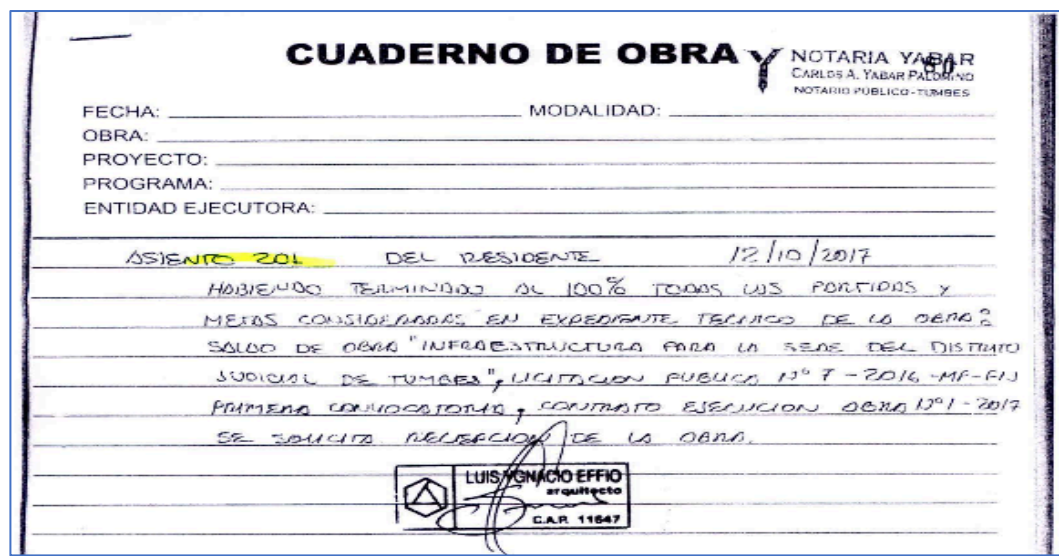 CUADERNO DE OBRA
NOTARIA YABAR
CARLOS A. YABAR PALOMINO
NOTARIO PUBLICO - TUMBES
FECHA: MODALIDAD:
OBRA:
PROYECTO:
PROGRAMA:
ENTIDAD EJECUTORA:
ASIENTO 201 DEL RESIDENTE 12/10/2017
HABIENDO TERMINADO AL 100% TODAS LAS PARTIDAS Y
METAS CONSIDERADAS EN EXPEDIENTE TECNICO DE LA OBRA:
SALDO DE OBRA "INFRAESTRUCTURA PARA LA SEDE DEL DISTRITO
JUDICIAL DE TUMBES", LICITACION PUBLICA Nº 7 - 2016 - MP - FN
PRIMERA CONVOCATORIA, CONTRATO EJECUCION OBRA Nº 1 - 2017
SE SOLICITA RECEPCION DE LA OBRA.
LUIS YGNACIO EFFIO
arquitecto
C.A.P. 11647